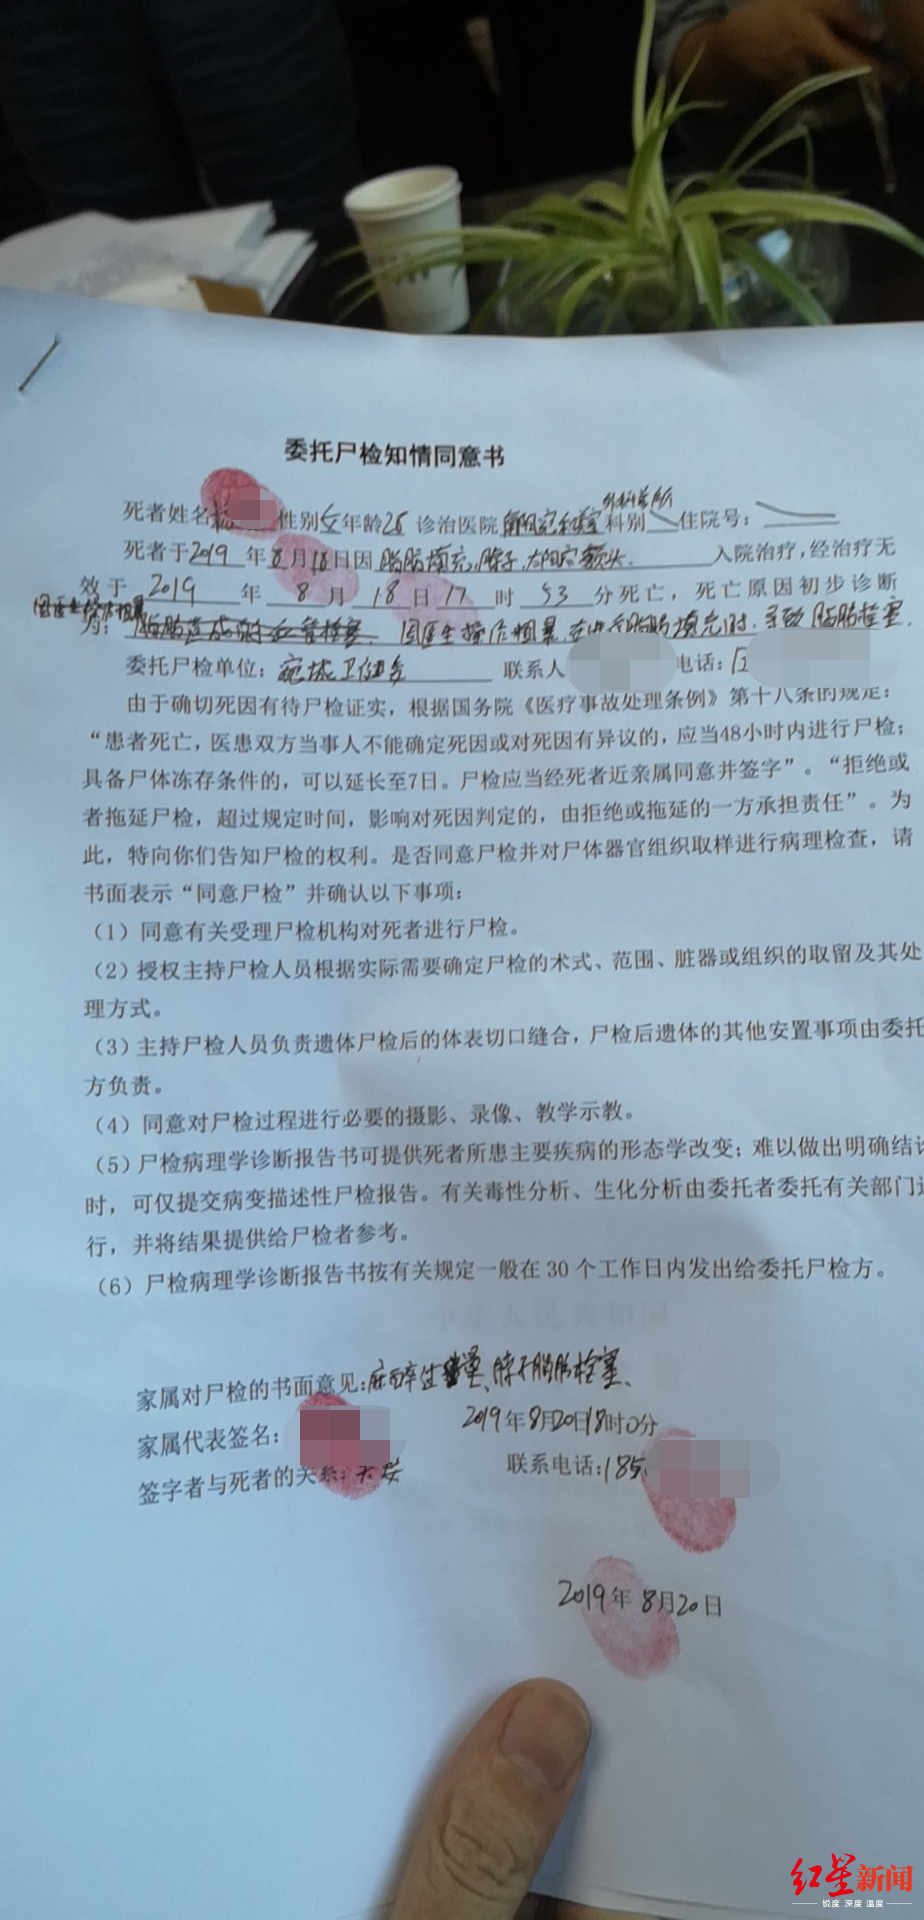 委托尸检知情同意书
外科学所
死者姓名 性别女年龄28 诊治医院 科别 住院号：
死者于2019年8月18日因脂肪填充，脖子、太阳穴、额头. 入院治疗，经治疗无
效于 2019 年 8 月 18 日 17 时 53 分死亡，死亡原因初步诊断
为： 因医生操作粗暴，在进行脂肪填充时，导致脂肪栓塞.
委托尸检单位：宛城卫健委 联系人 电话：
由于确切死因有待尸检证实，根据国务院《医疗事故处理条例》第十八条的规定：
“患者死亡，医患双方当事人不能确定死因或对死因有异议的，应当48小时内进行尸检；
具备尸体冻存条件的，可以延长至7日。尸检应当经死者近亲属同意并签字”。“拒绝或
者拖延尸检，超过规定时间，影响对死因判定的，由拒绝或拖延的一方承担责任”。为
此，特向你们告知尸检的权利。是否同意尸检并对尸体器官组织取样进行病理检查，请
书面表示“同意尸检”并确认以下事项：
（1）同意有关受理尸检机构对死者进行尸检。
（2）授权主持尸检人员根据实际需要确定尸检的术式、范围、脏器或组织的取留及其处
理方式。
（3）主持尸检人员负责遗体尸检后的体表切口缝合，尸检后遗体的其他安置事项由委托
方负责。
（4）同意对尸检过程进行必要的摄影、录像、教学示教。
（5）尸检病理学诊断报告书可提供死者所患主要疾病的形态学改变；难以做出明确结论
时，可仅提交病变描述性尸检报告。有关毒性分析、生化分析由委托者委托有关部门进
行，并将结果提供给尸检者参考。
（6）尸检病理学诊断报告书按有关规定一般在 30 个工作日内发出给委托尸检方。
家属对尸检的书面意见：麻醉过量、脖子脂肪栓塞、
家属代表签名： 2019年8月20日18时0分
签字者与死者的关系：夫妻 联系电话：185
2019年 8月20日
红星新闻
锐度 深度 温度